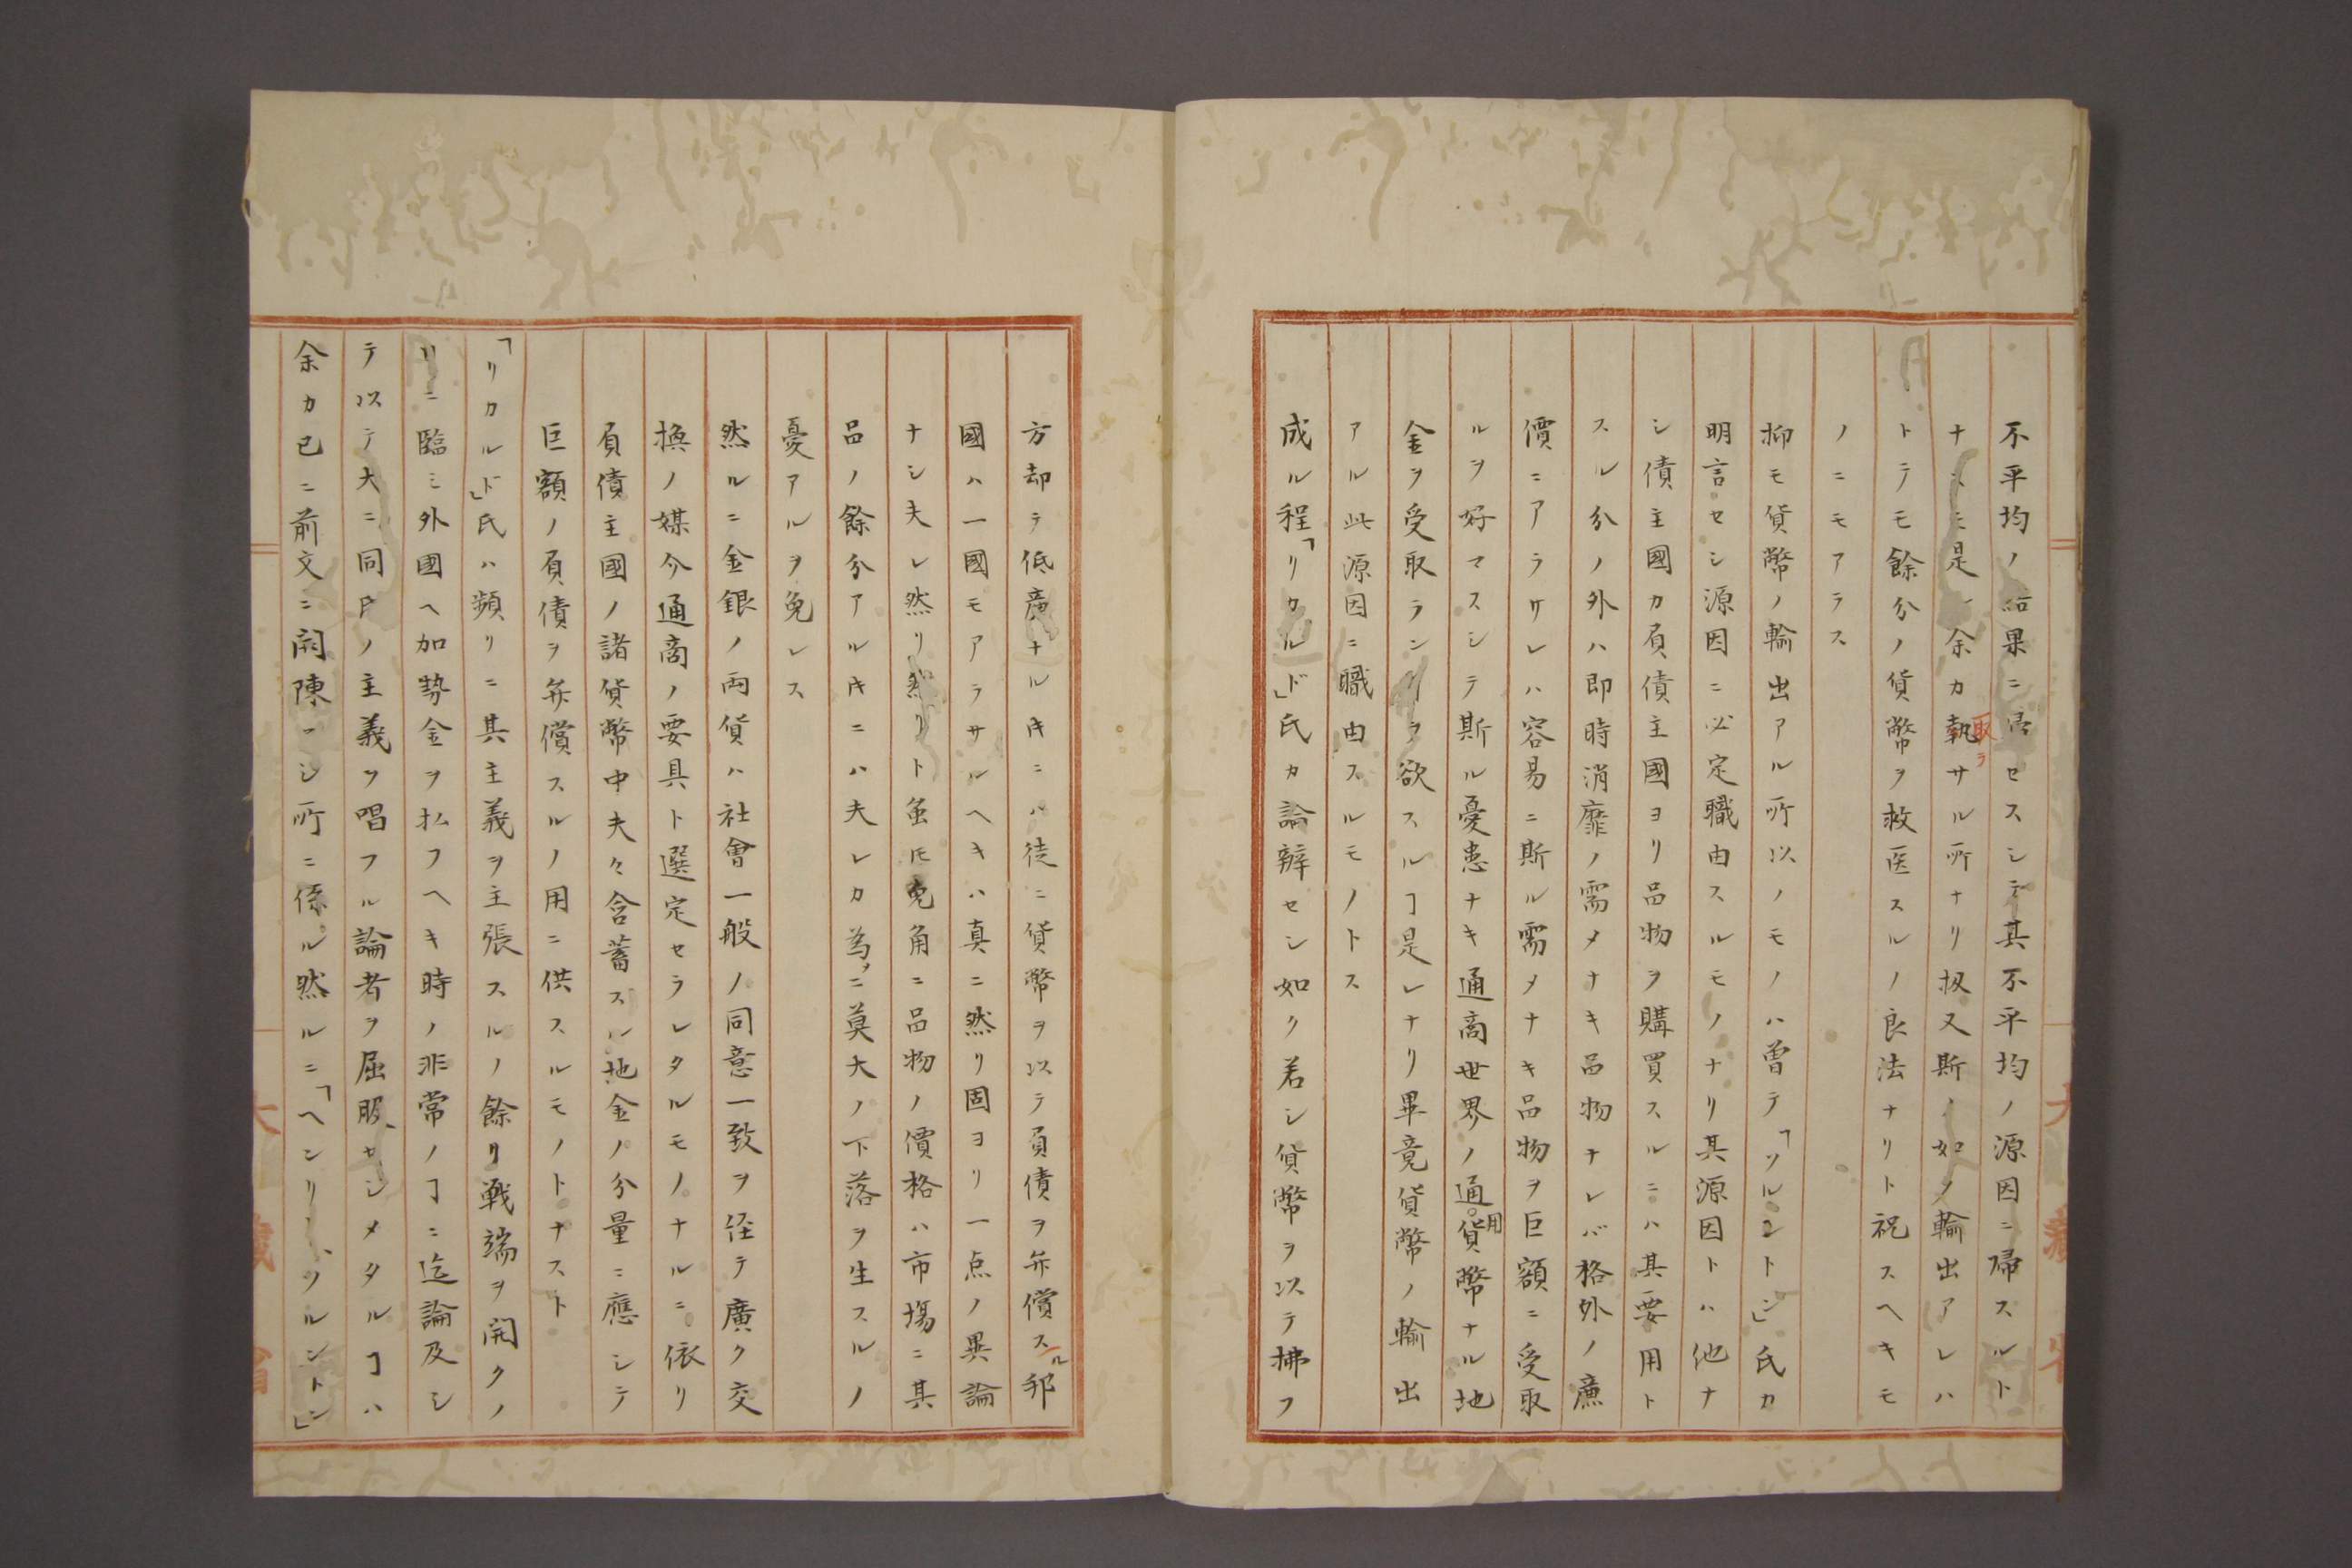 不平均ノ結果ニ帰セスシテ其不平均ノ源因ニ帰スルト
ナシ是レ余カ執取ラサル所ナリ扨又斯ノ如ク輸出アレハ
トテモ餘分ノ貨幣ヲ救医スルノ良法ナリト祝スヘキモ
ノニモアラス
抑モ貨幣ノ輸出アル所以ノモノハ曽テ「ソルントン」氏カ
明言セシ源因ニ必定職由スルモノナリ其源因トハ他ナ
シ債主國カ負債主國ヨリ品物ヲ購買スルニハ其要用ト
スル分ノ外ハ即時消靡ノ需メナキ品物ナレバ格外ノ廉
價ニアラサレハ容易ニ斯ル需メナキ品物ヲ巨額ニ受取
ルヲ好マスシテ斯ル憂患ナキ通商世界ノ通用貨幣ナル地
金ヲ受取ランヿヲ欲スルヿ是レナリ畢竟貨幣ノ輸出
アル此源因ニ職由スルモノトス
成ル程「リカルド」氏カ論辨セシ如ク若シ貨幣ヲ以テ拂フ
方却テ低廉ナルキニハ徒ニ貨幣ヲ以テ負債ヲ弁償スル邦
國ハ一國モアラサルヘキハ真ニ然リ固ヨリ一点ノ異論
ナシ夫レ然リ然リト虽𪜈兎角ニ品物ノ價格ハ市場ニ其
品ノ餘分アルキニハ夫レカ為ヲニ莫大ノ下落ヲ生スルノ
憂アルヲ免レス
然ルニ金銀ノ両貨ハ社會一般ノ同意一致ヲ径テ廣ク交
換ノ媒介通商ノ要具ト選定セラレタルモノナルニ依リ
負債主國ノ諸貨幣中夫々含蓄スル地金ノ分量ニ應シテ
巨額ノ負債ヲ弁償スルノ用ニ供スルモノトナスト
「リカルド」氏ハ頻リニ其主義ヲ主張スルノ餘リ戦端ヲ開クノ
リニ臨ミ外國ヘ加勢金ヲ払フヘキ時ノ非常ノヿニ迄論及シ
テ以テ大ニ同氏ノ主義ヲ唱フル論者ヲ屈服セシメタルヿハ
余カ已ニ前文ニ開陳セシ所ニ係ル然ルニ「ヘンリー、ソルントン」